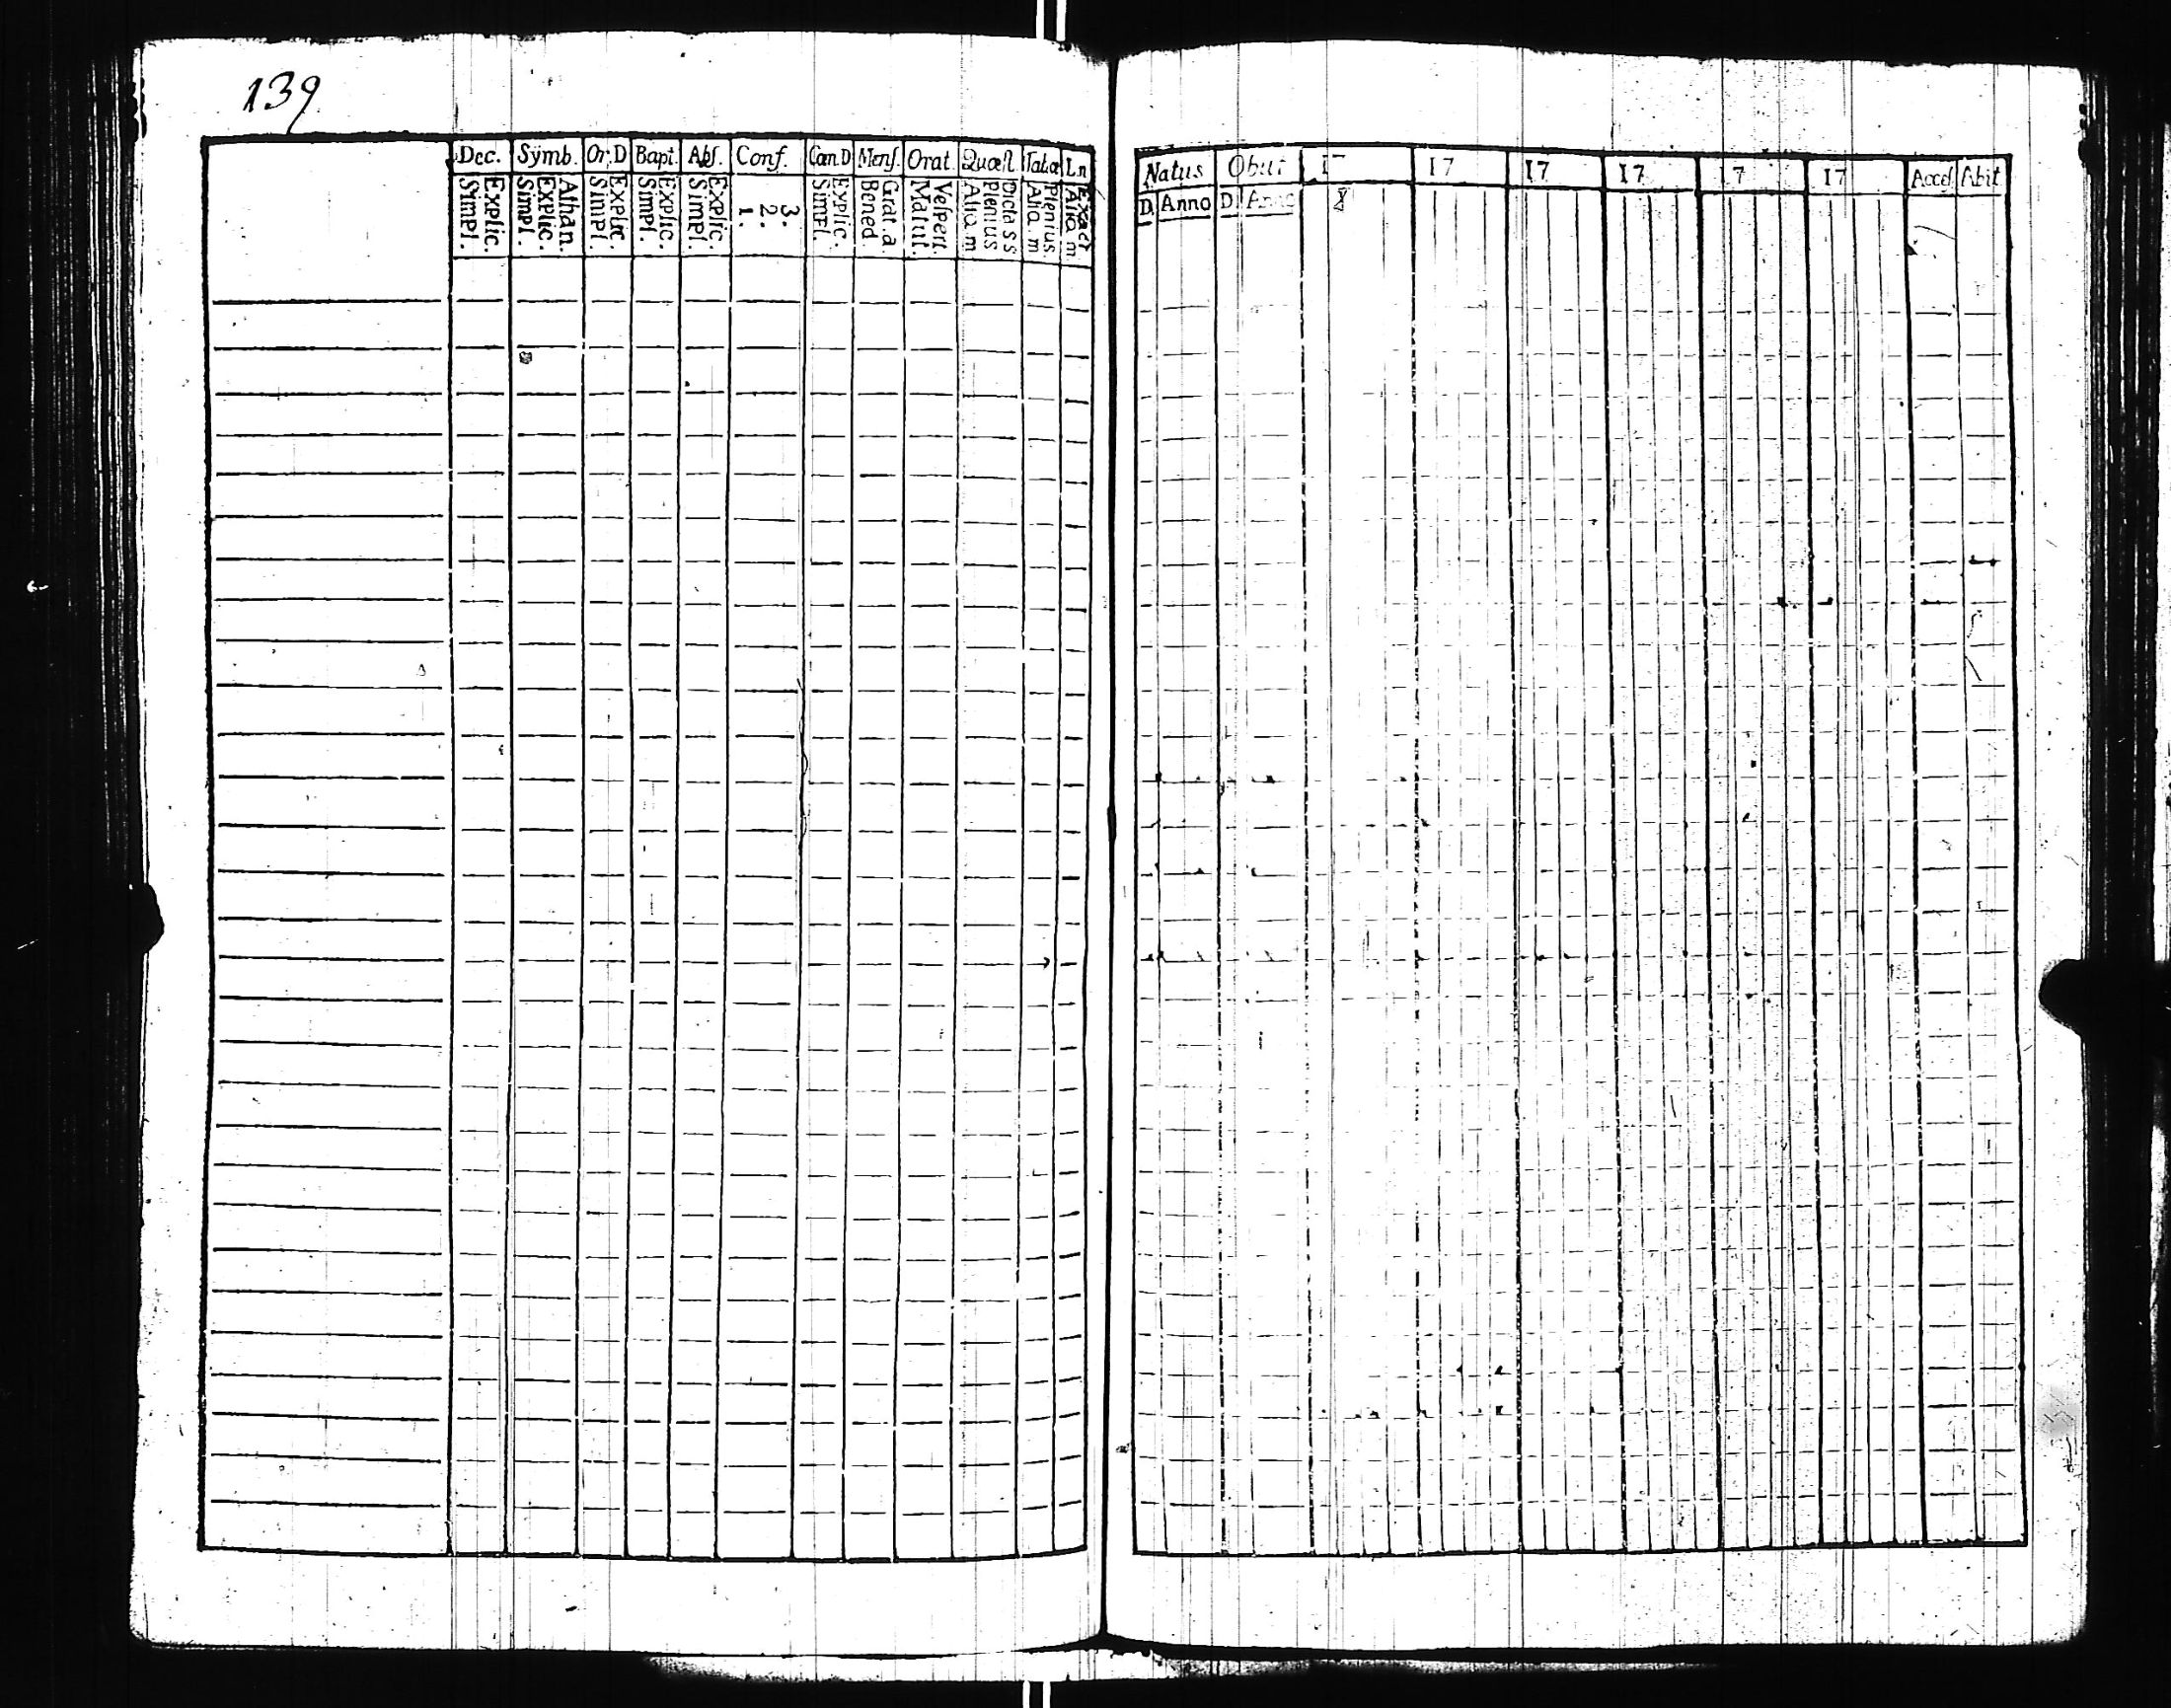 139
Dec. Symb. Or. D Bapt. Abs. Conf. Cœn. D Mens. Orat. Quæst. Tabæ Ln
Explic. Simpl. Athan. Explic. Simpl. Explic. Simpl. Explic. Simpl. Explic. Simpl. 3. 2. 1. Explic. Simpl. Grat. a. Bened. Vespert. Matut. Dicta s s Plenius Aliq. m Plenius. Aliq. m Exact Aliq. m
Natus Obiit 17 17 17 17 17 17 Acces Abit
D. Anno D Anno 8